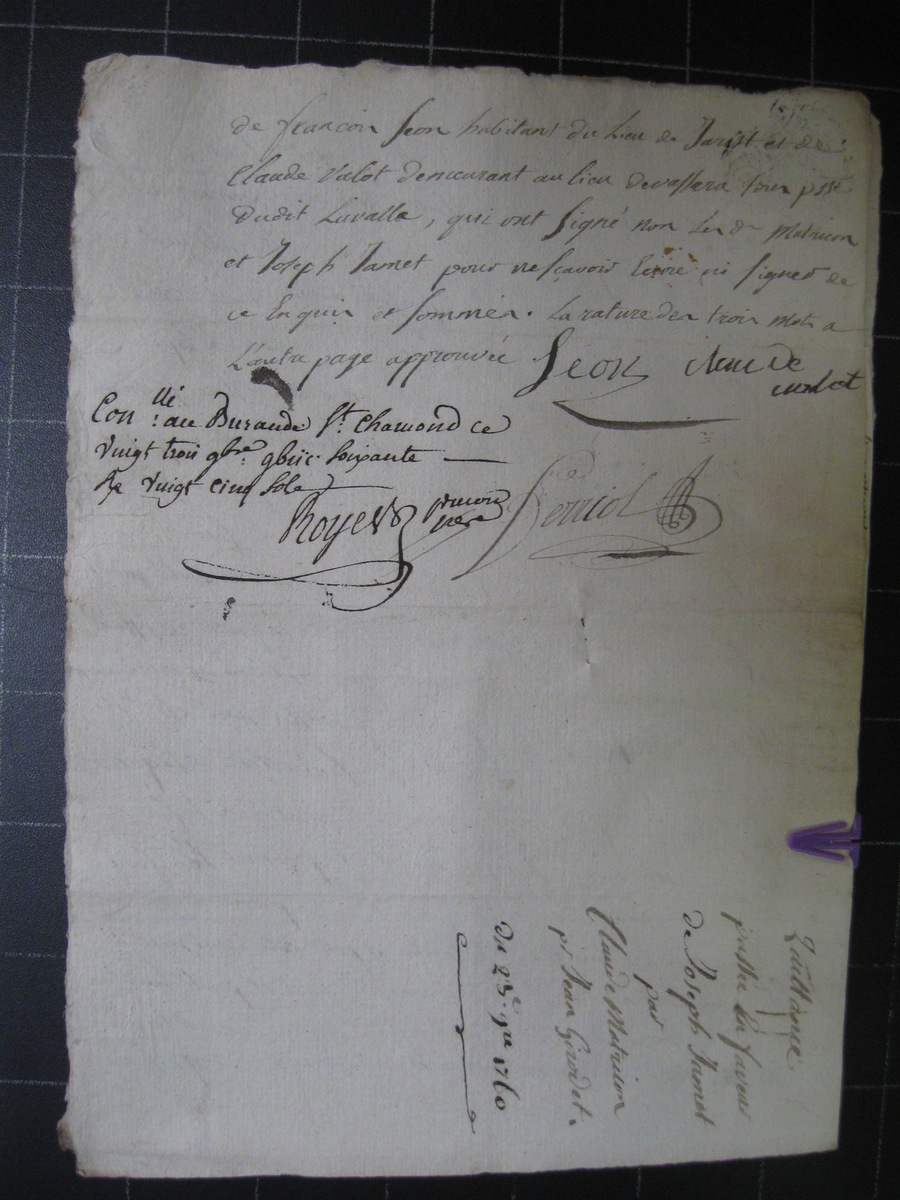 de françois Seon habitant du Lieu de Jarest et de
Claude Valot demeurant au lieu
dudit Lavalla, qui ont Signé non Led. Matricon
et Joseph Jamet pour ne sçavoir Ecrire ni signer de
ce Enquis et sommés. La rature des trois mots a
L'autre page approuvée Seon claude
valot
Conllé : au Bureau de St. Chamond ce
vingt trois 9bre. gbiic. soixante
Re vingt cinq sols
Royer
père
Quittance
passée En faveur
de Joseph Jamet
par
Claude Matricon
pr Jean Girodet.
du 23e. 9re 1760